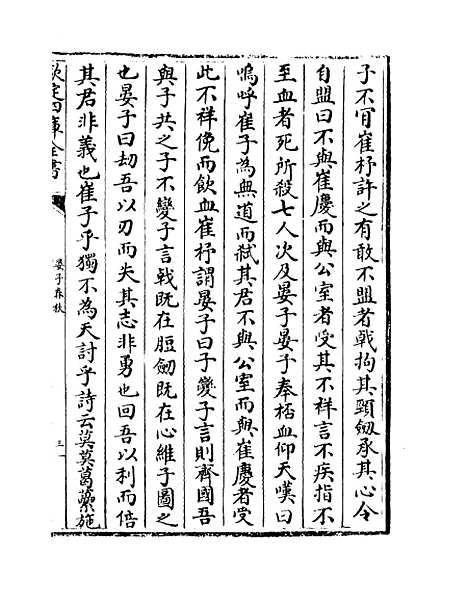 子不肎崔杼許之有敢不盟者戟拘其頸劔承其心令
自盟曰不與崔慶而與公室者受其不祥言不疾指不
至血者死所殺七人次及晏子晏子奉桮血仰天嘆曰
嗚呼崔子為無道而弑其君不與公室而與崔慶者受
此不祥俛而飲血崔杼謂晏子曰子變子言則齊國吾
與子共之子不變子言戟既在脰劔既在心維子圖之
也晏子曰劫吾以刃而失其志非勇也回吾以利而倍
其君非義也崔子子獨不為天討乎詩云莫莫葛虆施
欽定四庫全書
晏子春秋
三一